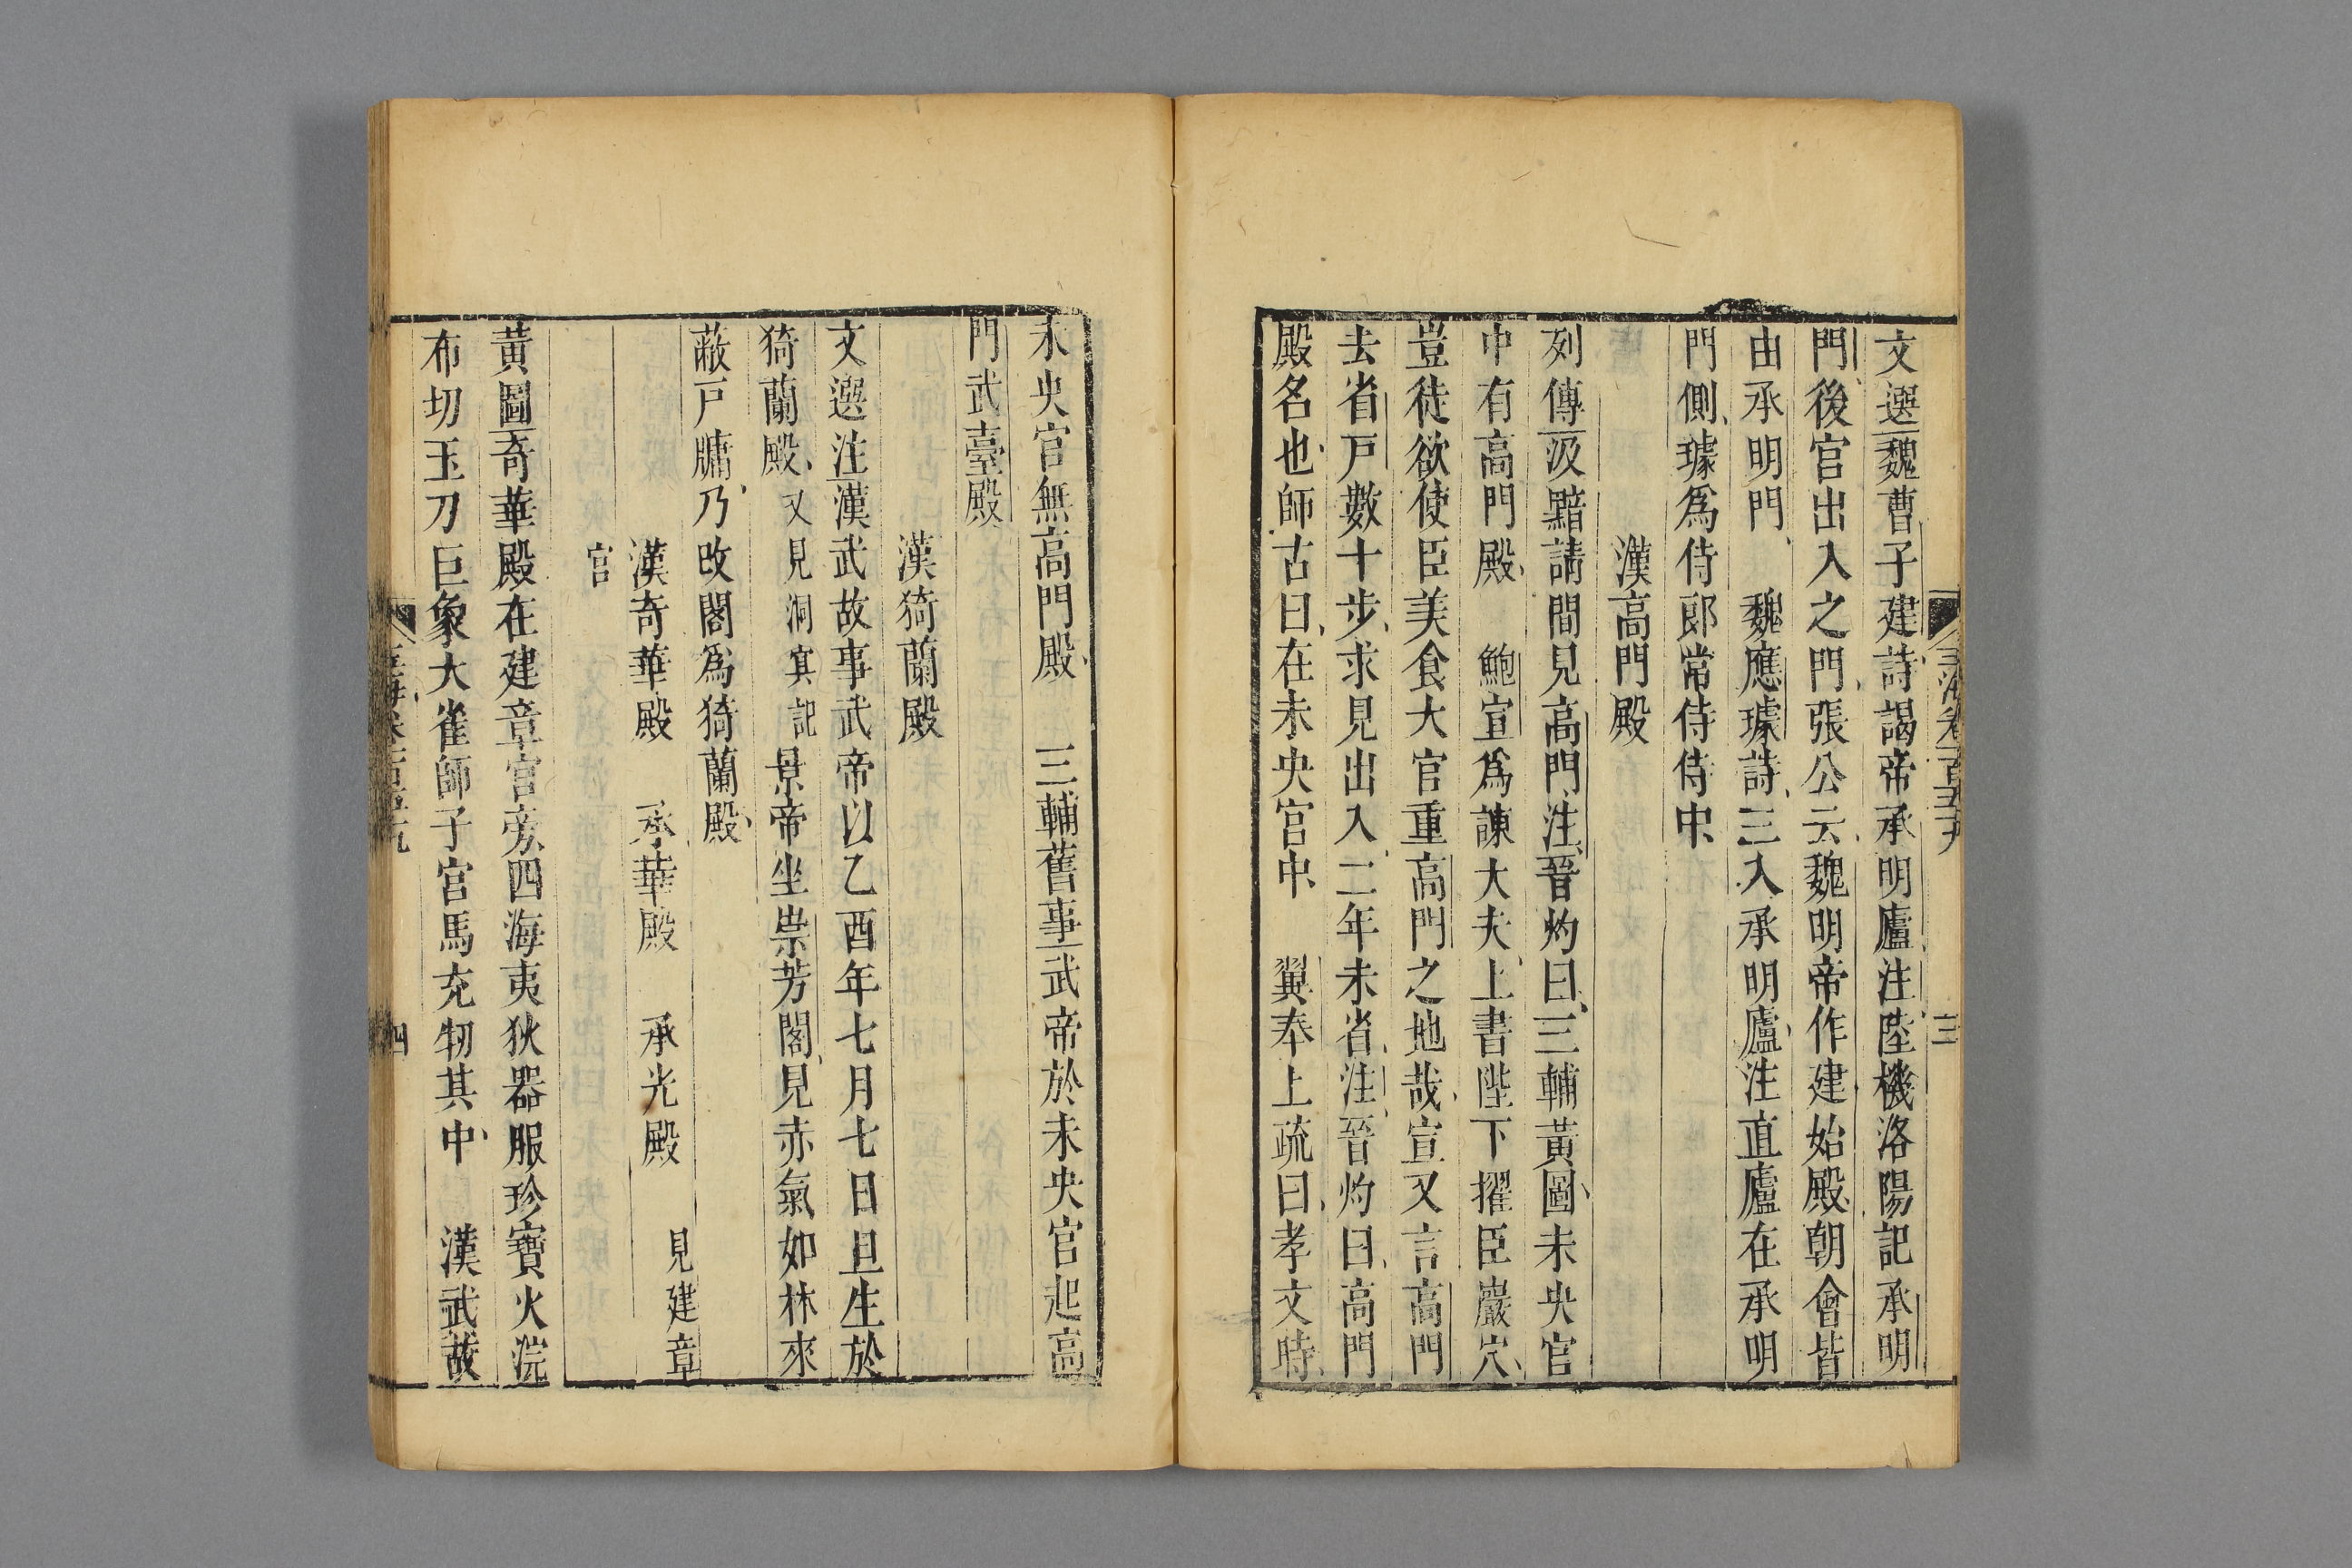 文選魏曹子建詩謁帝承明廬注陸機洛陽記承明
門後宫出入之門張公云魏明帝作建始殿朝會皆
由承明門　魏應璩詩三入承明廬注直廬在承明
門側璩爲侍郎常侍侍中
漢高門殿
列傳汲黯請間見高門注晉灼曰三輔黃圖未央宫
中有高門殿　鮑宣爲諫大夫上書陛下擢臣巖穴
豈徒欲使臣美食大官重高門之地哉宣又言高門
去省戸數十步求見出入二年未省注晉灼曰高門
殿名也師古曰在未央宫中　翼奉上疏曰孝文時
玉海卷一百五十九　三
未央宫無高門殿　三輔舊事武帝於未央宫起高
門武臺殿
漢猗蘭殿
文選注漢武故事武帝以乙酉年七月七日旦生於
猗蘭殿又見洞冥記景帝坐崇芳閣見赤氣如林來
蔽戸牖乃改閣爲猗蘭殿
漢奇華殿　承華殿　承光殿　見建章
宫
黃圖奇華殿在建章宫旁四海夷狄器服珍寶火浣
布切玉刀巨象大雀師子宫馬充牣其中　漢武故
四